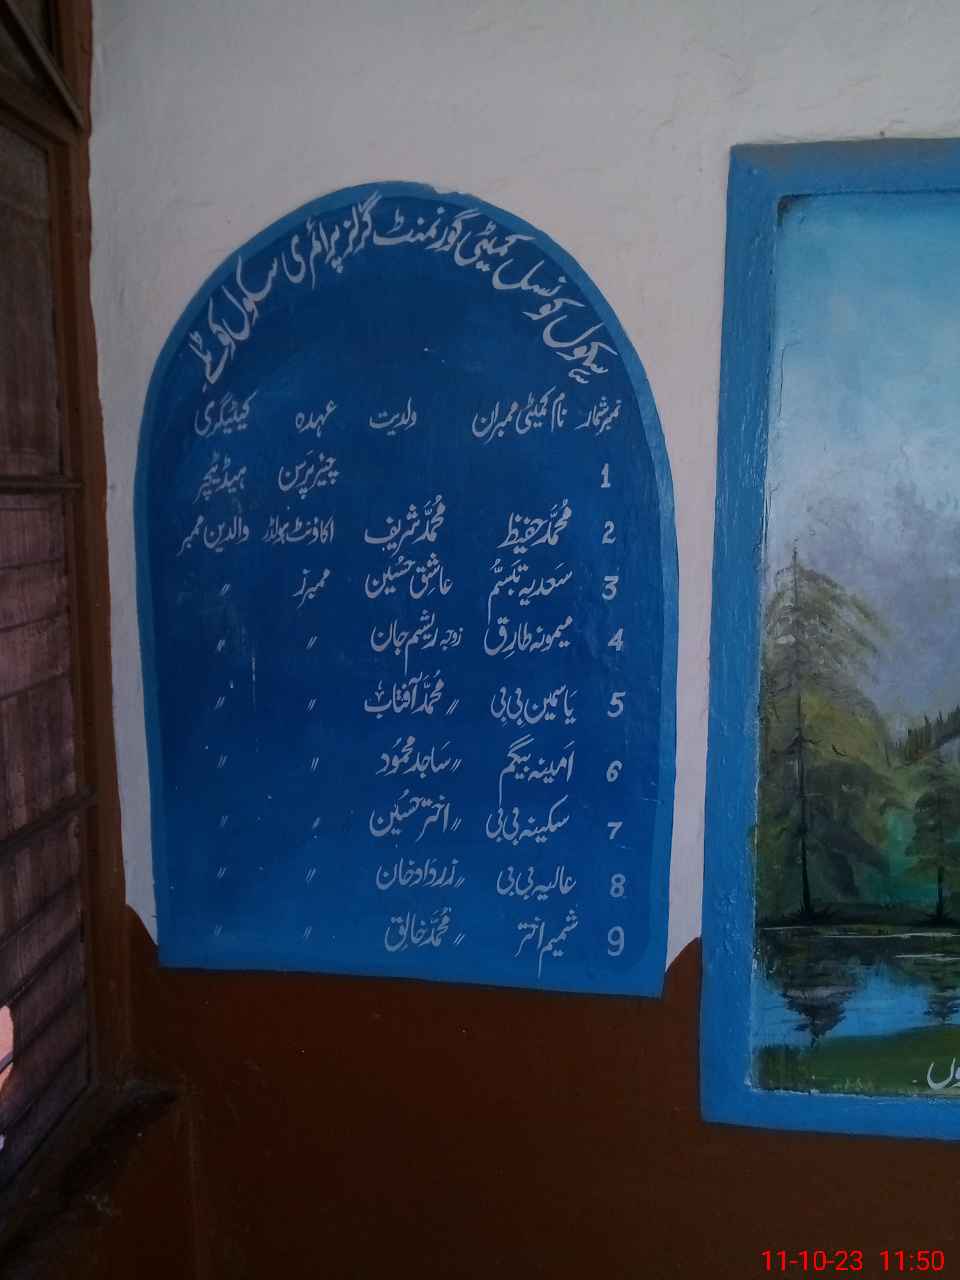 سکول کونسل کمیٹی گورنمنٹ گرلز پرائمری سکول کوٹلے
نمبرشمار نام کمیٹی ممبران ولدیت عہدہ کیٹیگری
1 چیئرپرسن ہیڈٹیچر
2 مُحمَّد حفیظ مُحمَّد شریف اکاؤنٹ ہولڈر والدین ممبر
3 سَعدیہ تبَسُّم عاشِق حُسین ممبرز 〃
4 میمونہ طارِق زوجہ ریشم جان 〃 〃
5 یَاسمین بی بی 〃 مُحمَّد آفتاب 〃 〃
6 اَمینہ بیگم 〃 سَاجد محمُود 〃 〃
7 سکینہ بی بی 〃 اختر حُسین 〃 〃
8 عالیہ بی بی 〃 زرداد خان 〃 〃
9 شمیم اختر 〃 مُحمَّد خالِق 〃 〃
11-10-23 11:50